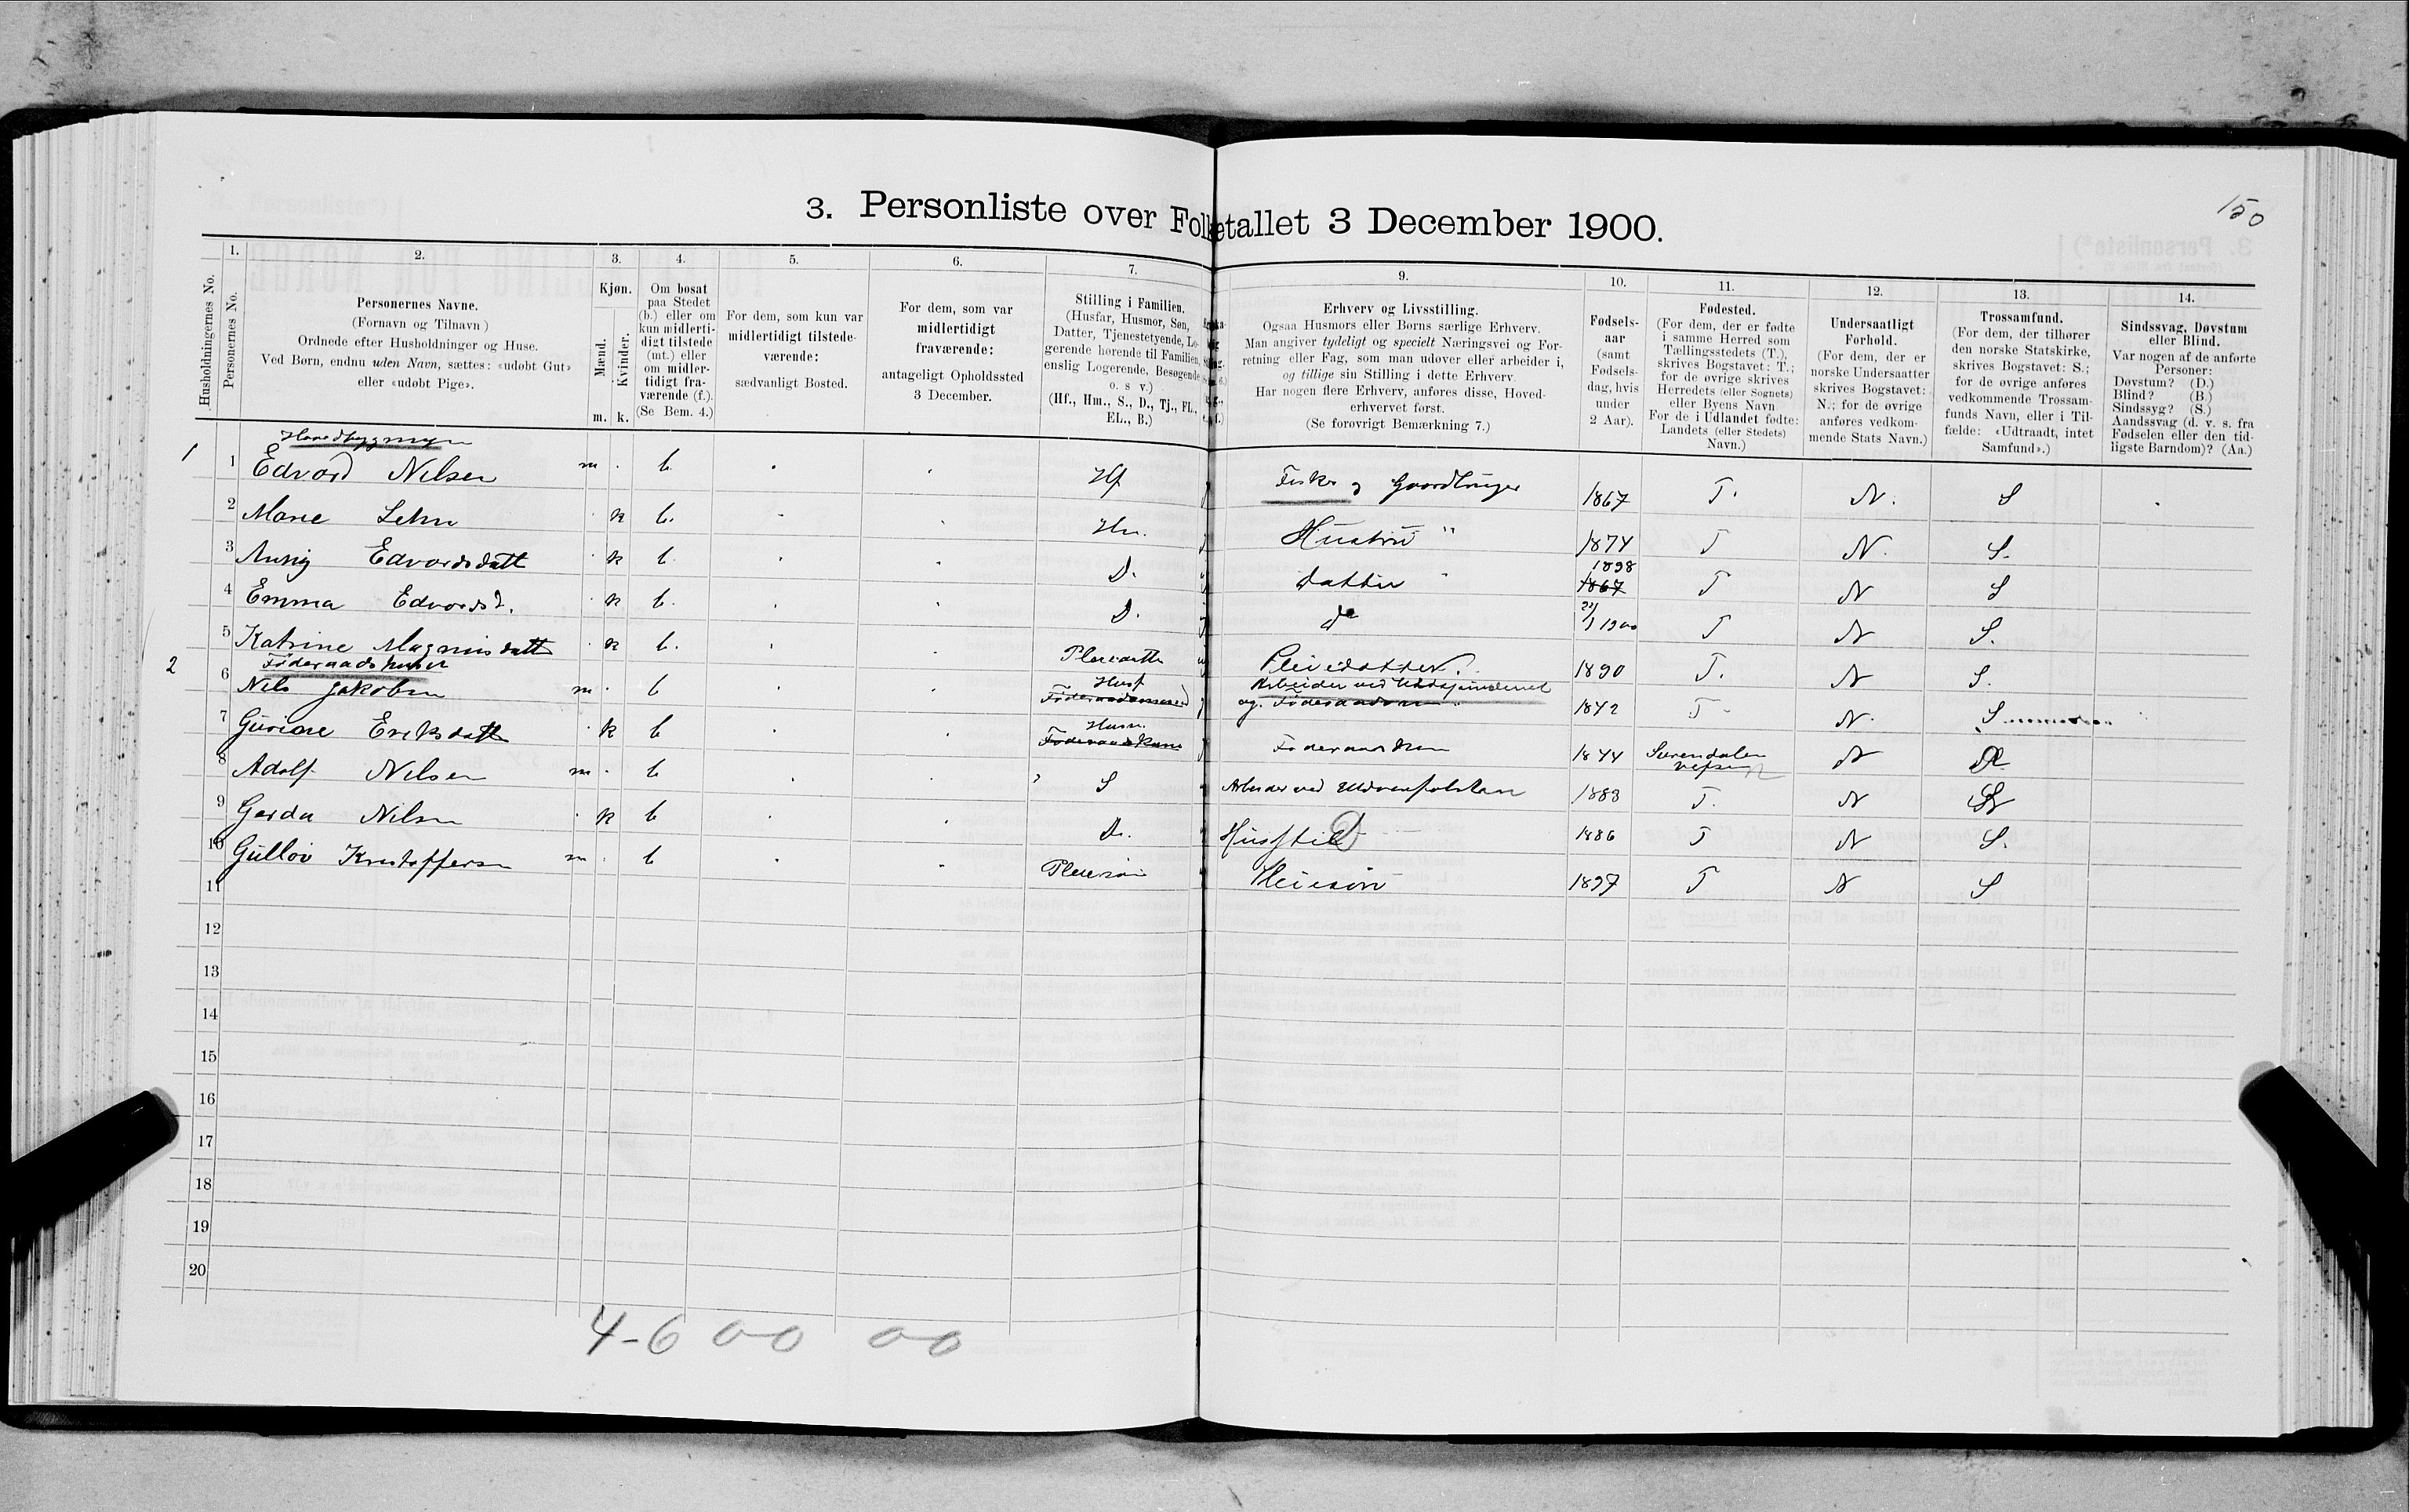 150
3. Personliste over Folketallet 3 December 1900.
1. 2. 3. 4. 5. 6. 7. 9. 10. 11. 12. 13. 14.
Husholdningernes No.
Personernes No.
Personernes Navne.
(Fornavn og Tilnavn)
Ordnede efter Husholdninger og Huse.
Ved Børn, endnu uden Navn, sættes: «udøbt Gut»
eller «udøbt Pige».
Kjøn.
Mænd.
Kvinder.
m. k.
Om bosat
paa Stedet
(b.) eller om
kun midlerti-
digt tilstede
(mt.) eller
om midler-
tidigt fra-
værende (f.).
(Se Bem. 4.)
For dem, som kun var
midlertidigt tilstede-
værende:
sædvanligt Bosted.
For dem, som var
midlertidigt
fraværende:
antageligt Opholdssted
3 December.
Stilling i Familien.
(Husfar, Husmor, Søn,
Datter, Tjenestetyende, Lo-
gerende hørende til Familien,
enslig Logerende, Besøgende
o. s v.)
(Hf., Hm., S., D., Tj., FL.,
EL., B.)
Erhverv og Livsstilling.
Ogsaa Husmors eller Børns særlige Erhverv.
Man angiver tydeligt og specielt Næringsvei og For-
retning eller Fag, som man udøver eller arbeider i,
og tillige sin Stilling i dette Erhverv.
Har nogen flere Erhverv, anføres disse, Hoved-
erhvervet først.
(Se forøvrigt Bemærkning 7.)
Fødsels-
aar
(samt
Fødsels-
dag, hvis
under
2 Aar).
Fødested.
(For dem, der er fødte
i samme Herred som
Tællingsstedets (T.),
skrives Bogstavet: T.;
for de øvrige skrives
Herredets (eller Sognets)
eller Byens Navn
For de i Udlandet fødte:
Landets (eller Stedets)
Navn.)
Undersaatligt
Forhold.
(For dem, der er
norske Undersaatter
skrives Bogstavet:
N.; for de øvrige
anføres vedkom-
mende Stats Navn.)
Trossamfund.
(For dem, der tilhører
den norske Statskirke,
skrives Bogstavet: S.;
for de øvrige anføres
vedkommende Trossam-
funds Navn, eller i Til-
fælde: «Udtraadt, intet
Samfund».)
Sindssvag, Døvstum
eller Blind.
Var nogen af de anførte
Personer:
Døvstum? (D.)
Blind? (B.)
Sindssyg? (S.)
Aandssvag (d. v. s. fra
Fødselen eller den tid-
ligste Barndom)? (Aa.)
Hovedbygningen
1 1 Edvard Nilsen m b. Hf Fisker og Gaardbruger 1867 T. N. S
2 Marie k b. Hm. Hustru " 1874 T N. S.
3 Edvardsdatt k b. D. datter 1898 1867 T N S
4 Emma Edvardsd. k b. D. do 1900 T N S.
5 Katrine Magnusdatt k b. Pleiedatter Pleiedatter 1890 T. N S.
2 Føderaadshuset
6 Nils Jakobsen m b Husf Føderaadsmand Arbeider ved
og Føderaadsm 1842 T N. S
7 Eriksdatt k b Husm. Føderaadskone Føderaadskone 1844 Vefsen N
8 Adolf Nilsen m b S Arbeider ved 1883 T. N S
9 Gerda Nilsen k b D. Husstel 1886 T N S.
10 Kristoffersen m b Pleiesøn Pleiesøn 1897 T N S
11
12
13
14
15
16
17
18
19
20
4-6 0-0 0-0